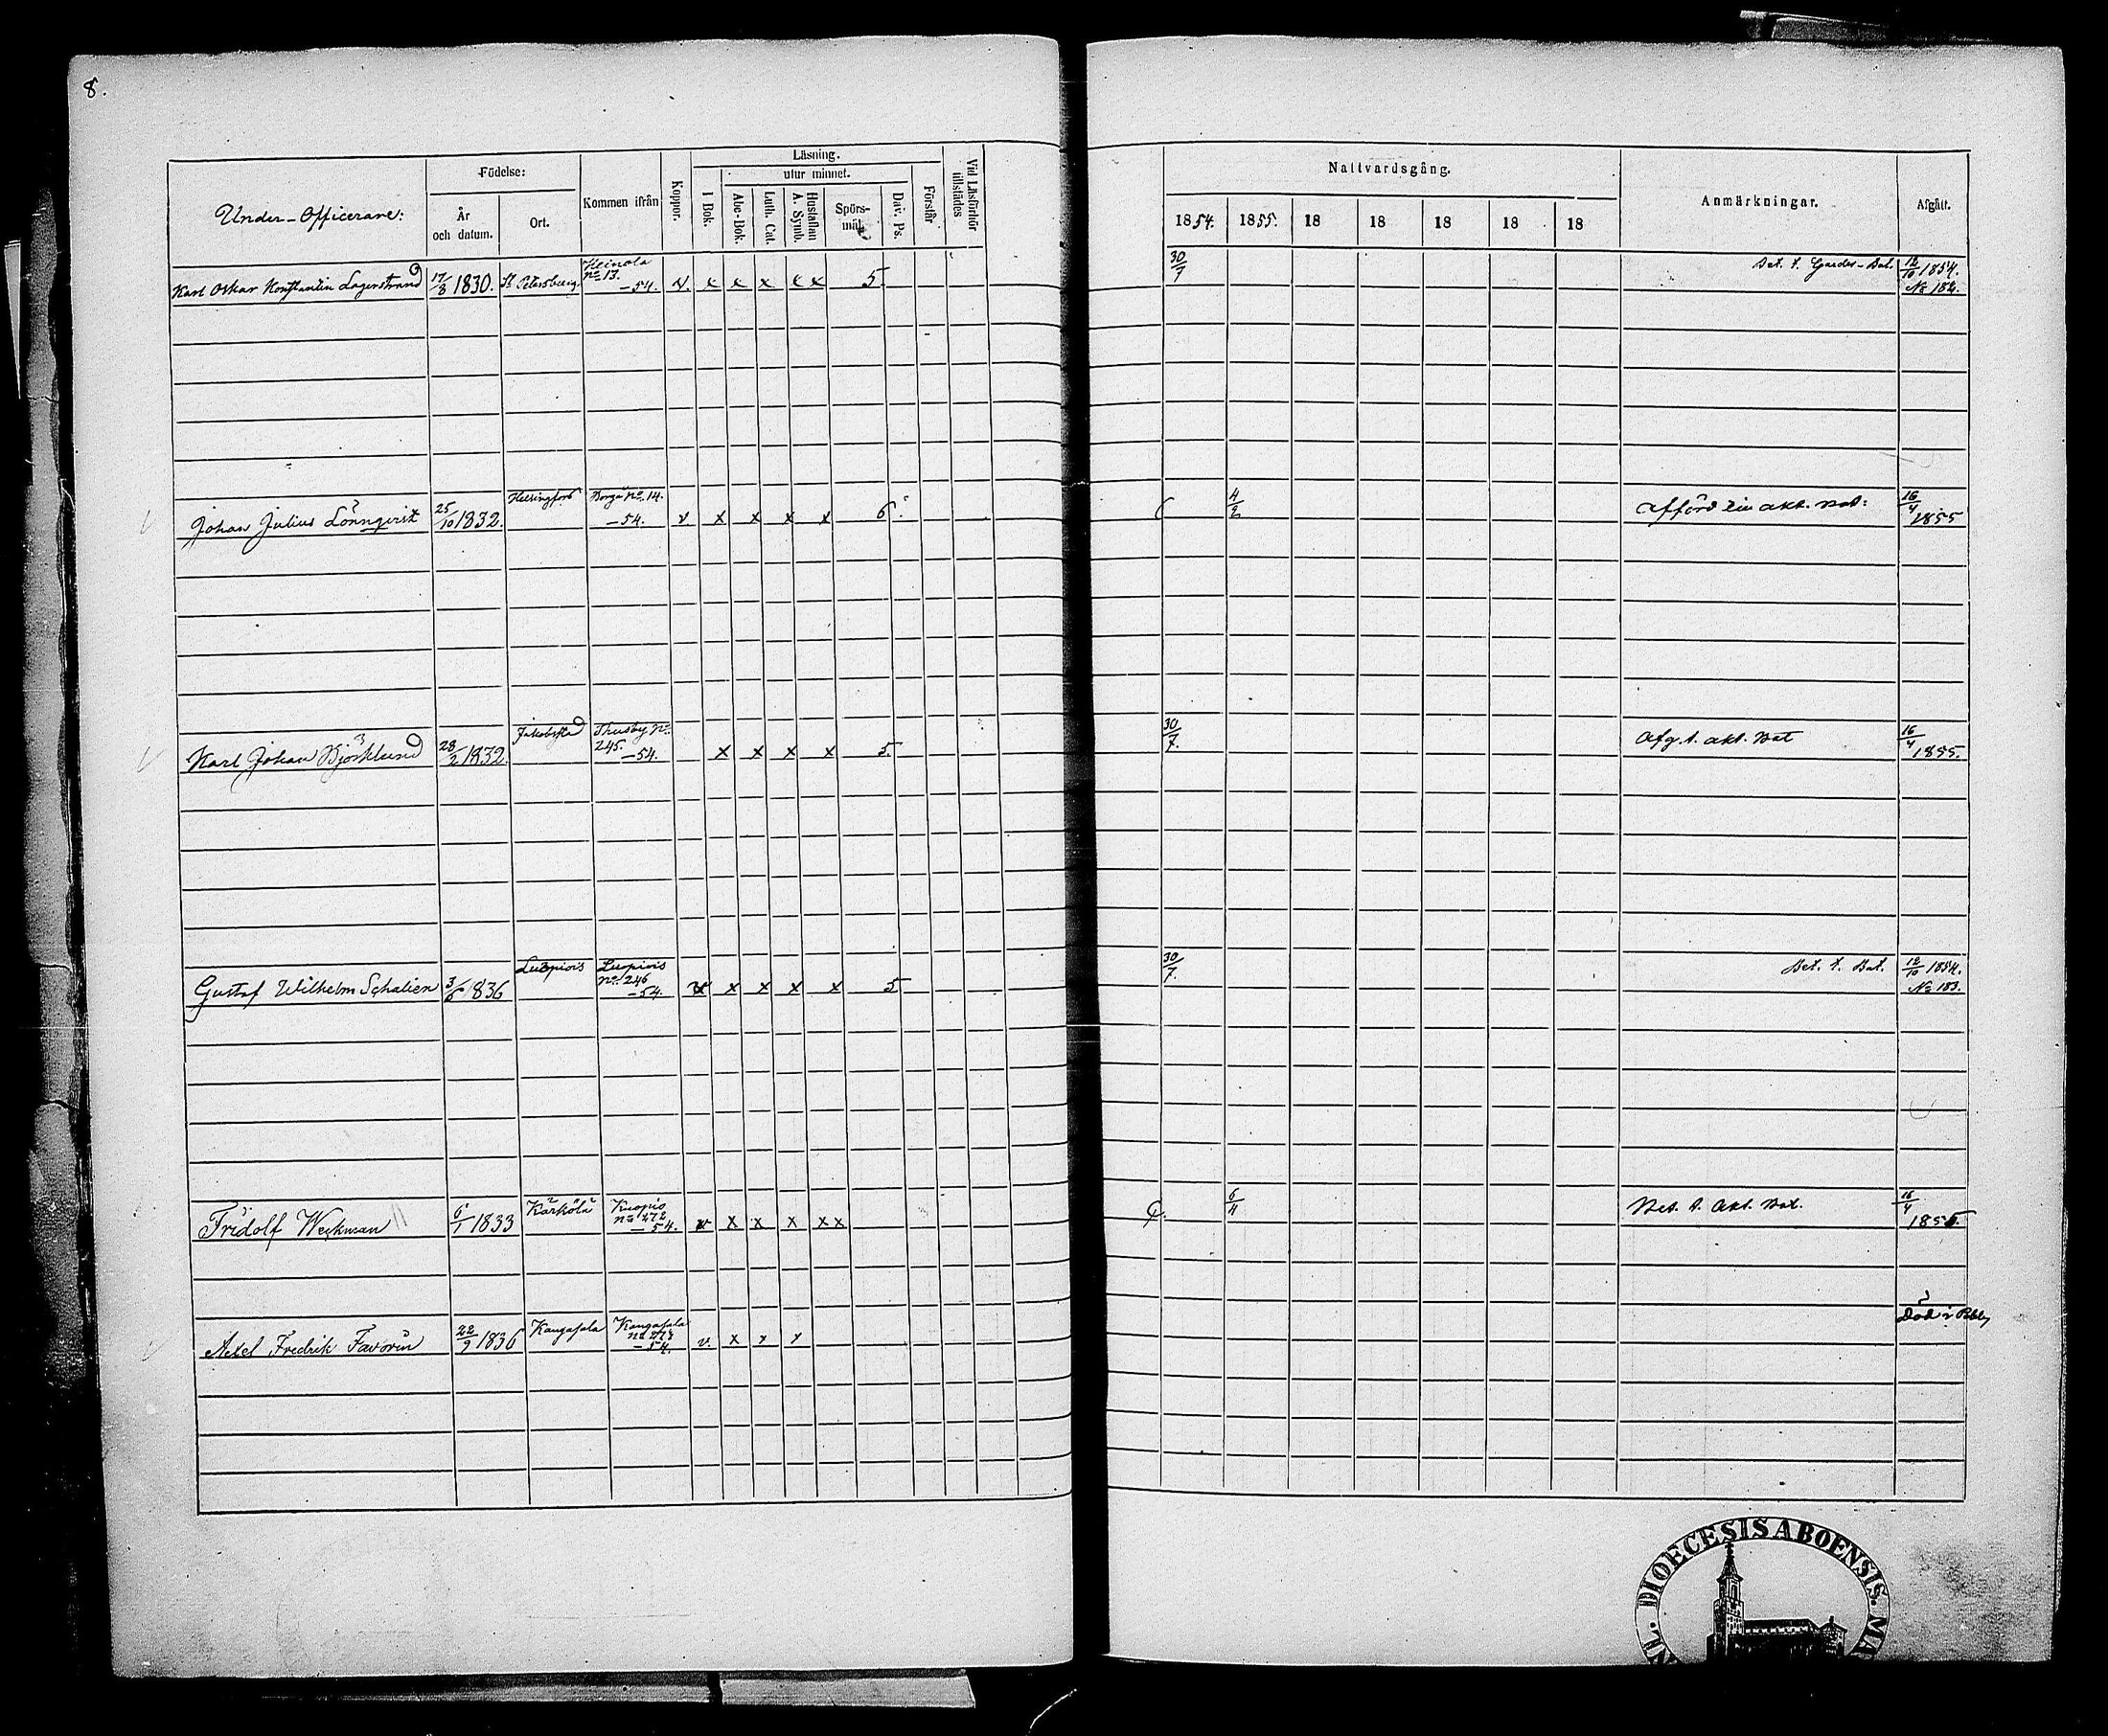 8.
Under-Officerare:
Födelse:
År och datum.
Ort.
Kommen ifrån
Koppor.
Läsning.
I Bok.
utur minnet.
Abc-Bok.
Luth. Cat.
Hustaflan A. Symb.
Spörs-mål.
Dav. Ps.
Förstår
Vid Läsförhör tillstädes
Nattvardsgång.
1854. 1855. 18 18 18 18 18
Anmärkningar.
Afgått.
Karl Oskar Konstantin Lagerstrand 17/8 1830. St Petersburg. Heinola No 13. -54. v. x x x x x 5 30/7 Bet. t. Gardes-Bat. 12/10 1854. No 182.
Johan Julius Lönnqvist 25/10 1832. Helsingfors Borgå No 14. -54. v x x x x 6 4/2 Afförd akt. Bat: 16/4 1855
Karl Johan Björklund 28/2 1832. Jakobstad Thusby No 245. -54. x x x x 5. 30/7. Afg. t. akt. Bat 16/4 1855.
Gustaf Wilhelm Schalien 3/6 1836 No 246 -54. x x x x 5 30/7. Bet. t. Bat. 12/10 1854. No 183.
Fridolf Weckman 6/1 1833 Kärkölä Kuopio No 272 -54. v x x x x x 6/4 Bet. t. Akt. Bat. 16/4 1855.
Axel Fredrik Favorin 22/9 1836 Kangasala Kangasala No 273 -54. v. x x x Död i
DIOECESIS ABOENSIS. MA